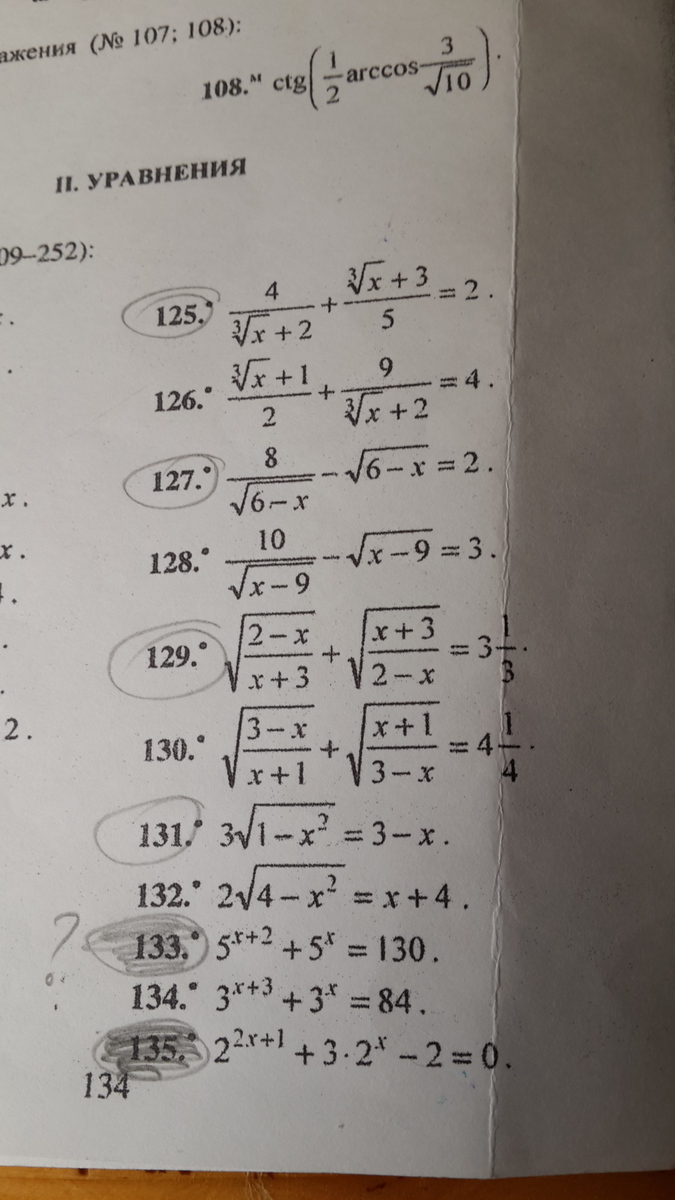 ажения (№ 107; 108):
108.ᴹ ctg(1/2 arccos 3/√10).
II. УРАВНЕНИЯ
09–252):
125.° 4/(∛x + 2) + (∛x + 3)/5 = 2.
126.° (∛x + 1)/2 + 9/(∛x + 2) = 4.
127.° 8/√(6 – x) – √(6 – x) = 2.
x.
128.° 10/√(x – 9) – √(x – 9) = 3.
x.
129.° √((2 – x)/(x + 3)) + √((x + 3)/(2 – x)) = 3 1/3.
2.
130.° √((3 – x)/(x + 1)) + √((x + 1)/(3 – x)) = 4 1/4.
131.° 3√(1 – x²) = 3 – x.
132.° 2√(4 – x²) = x + 4.
?
133.° 5ˣ⁺² + 5ˣ = 130.
134.° 3ˣ⁺³ + 3ˣ = 84.
135.° 2²ˣ⁺¹ + 3·2ˣ – 2 = 0.
134